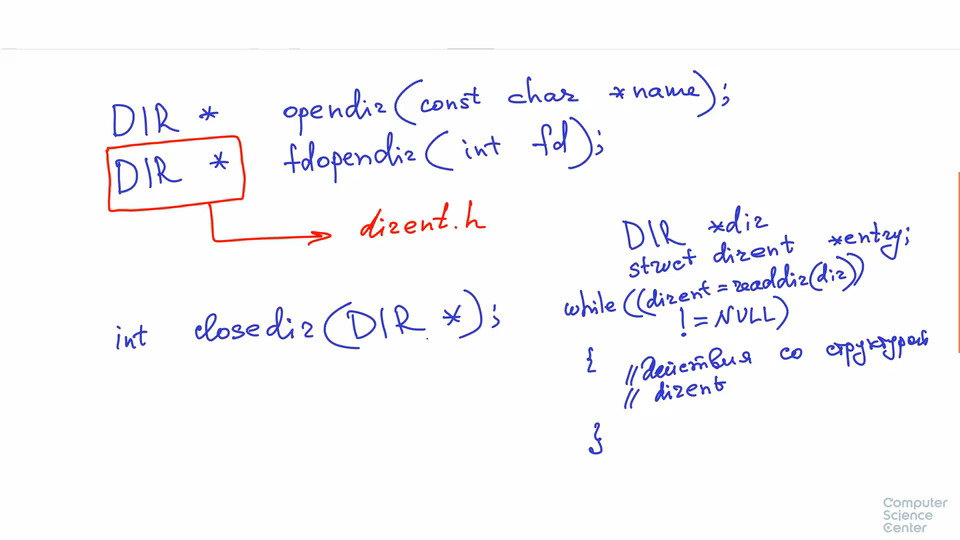 DIR * opendir(const char *name);
DIR * fdopendir(int fd);
dirent.h
int closedir(DIR *);
DIR *dir
struct dirent *entry;
while((dirent=readdir(dir))
!=NULL)
{ //Действия со структурой
// dirent
}
Computer
Science
Center